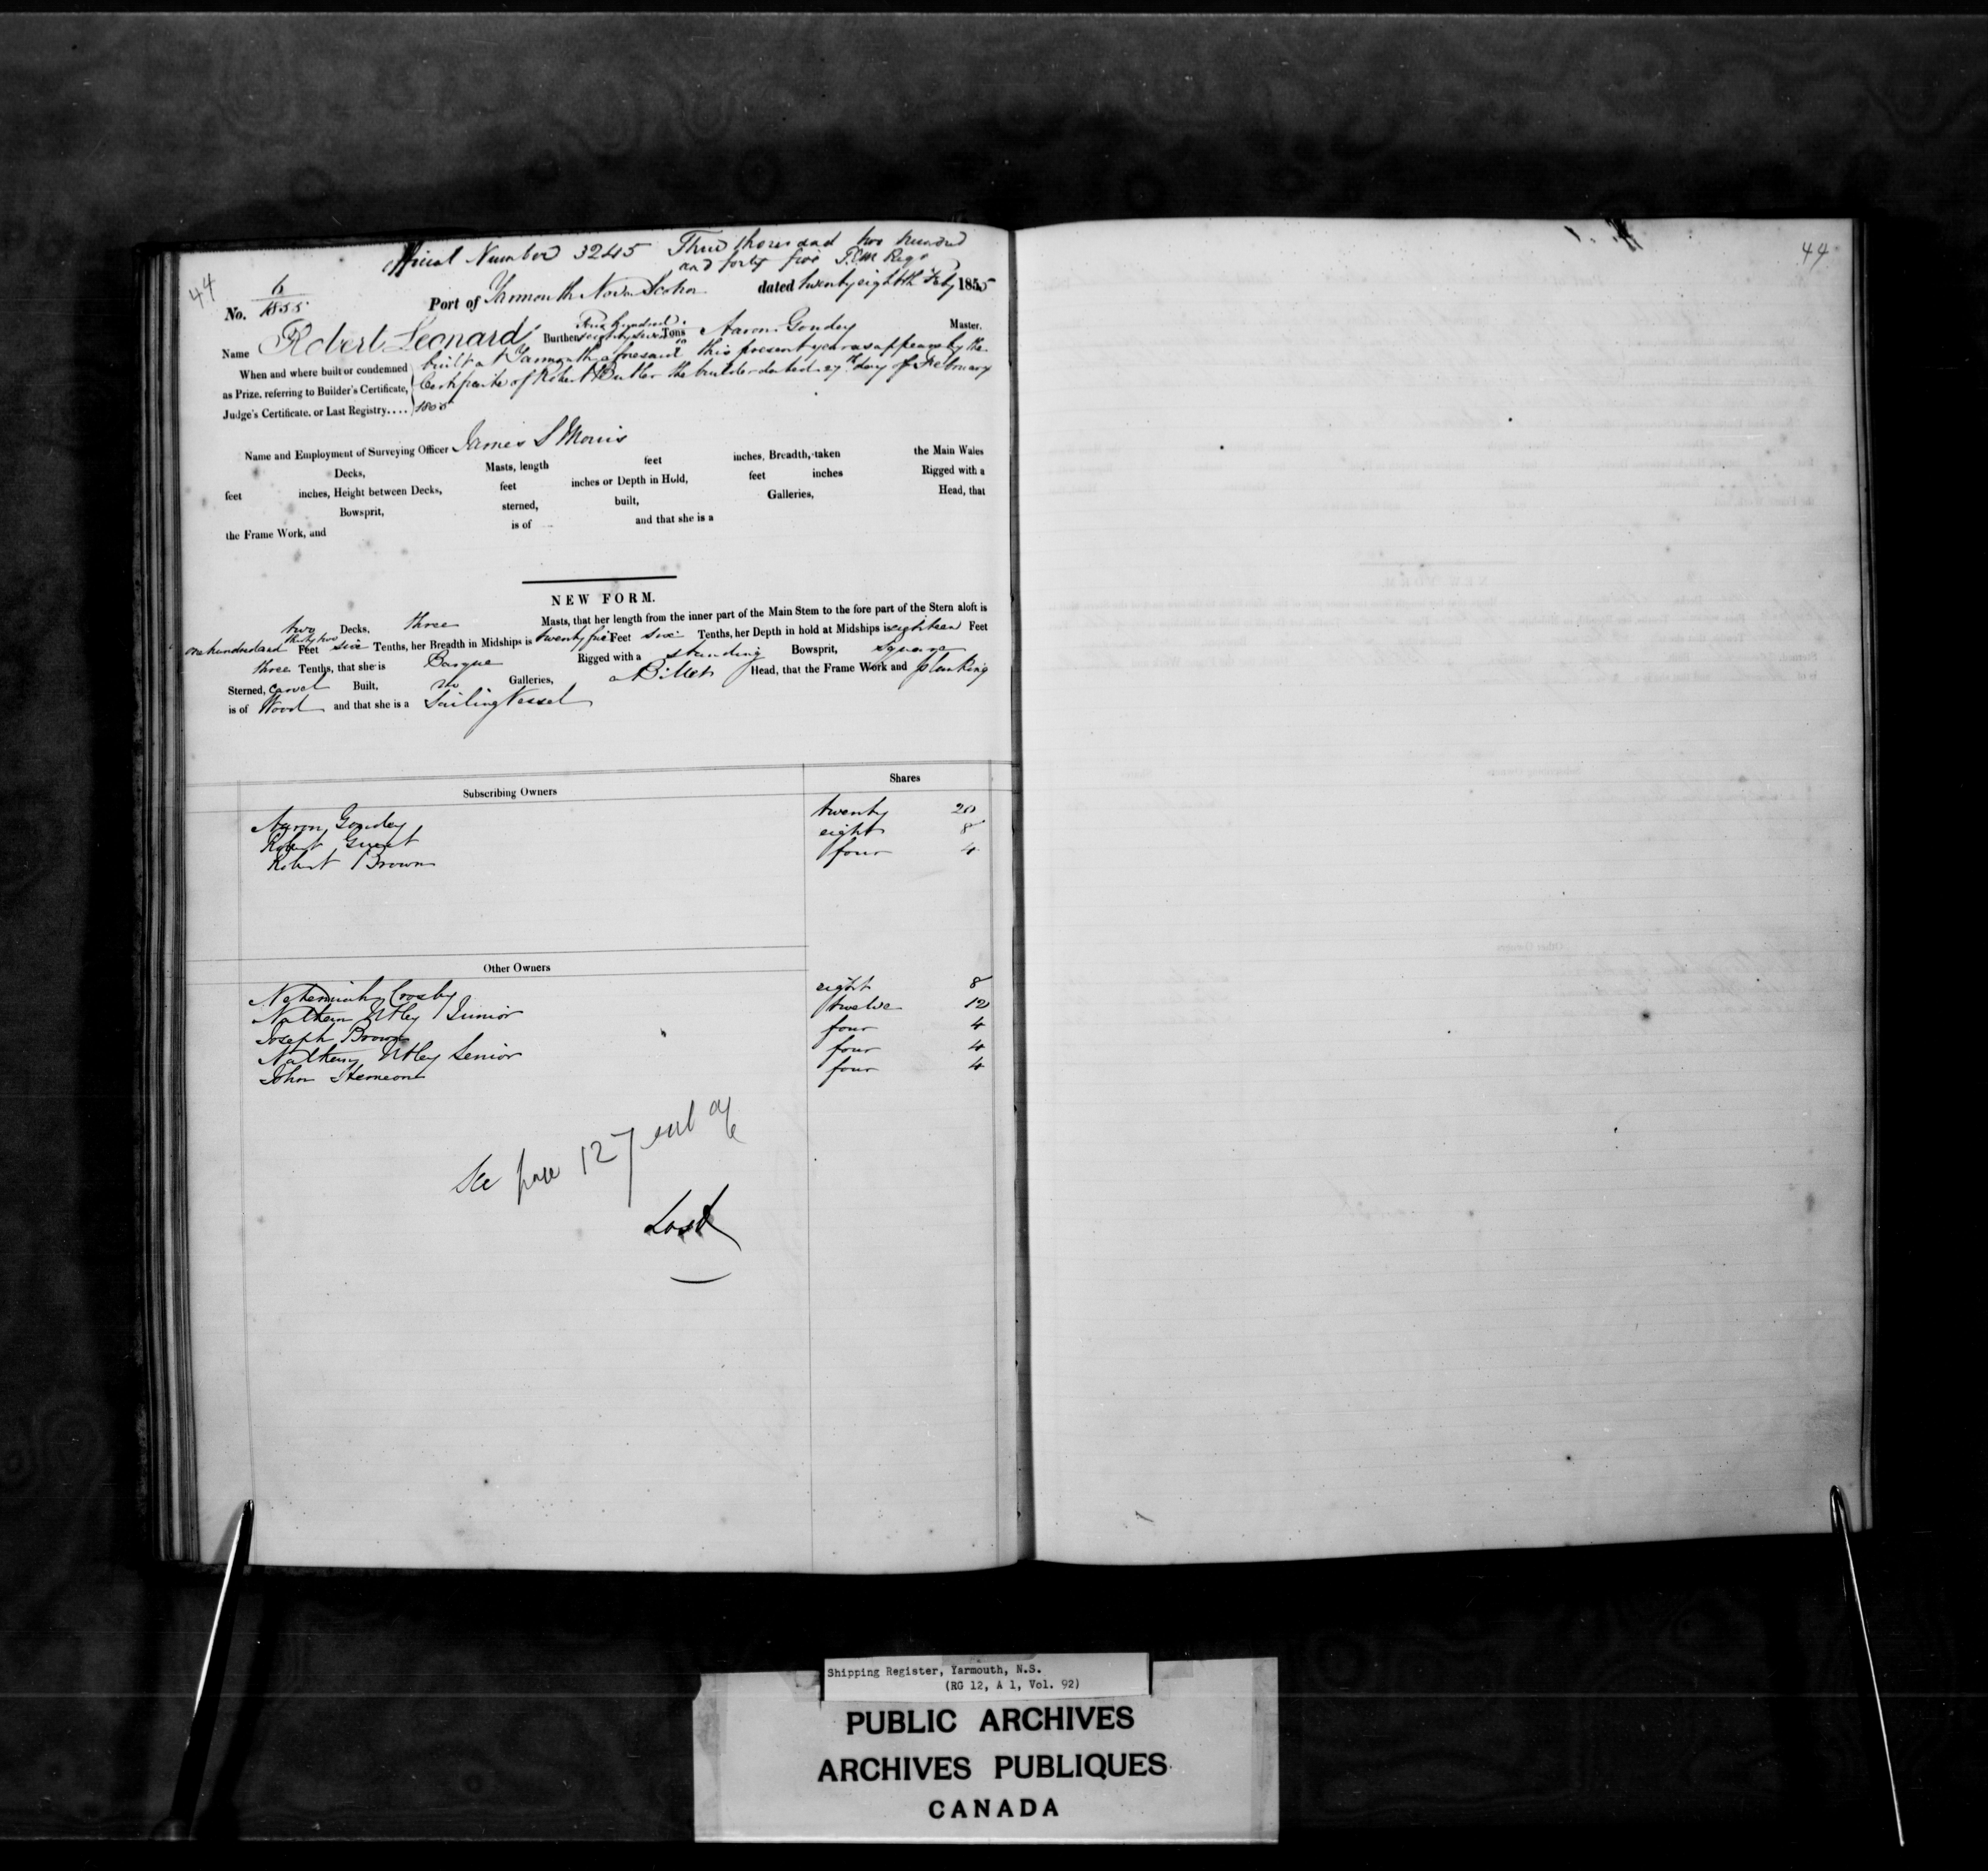 Official Number 3245 Three thousand two hundred
and forty five
44
No. 6/1855 Port of Yarmouth Nova Scotia dated twenty eighth Feby 1855
Name Robert Leonard Burthen Four hundred seventy seven Tons Aaron Goudey Master.
When and where built or condemned as Prize, referring to Builder's Certificate, Judge's Certificate, or Last Registry....
built at Yarmouth aforesaid this present year as appears by the
Certificate of Robert Butler the builder dated 27th day of February
1855
Name and Employment of Surveying Officer James S Morris
Decks, Masts, length feet inches, Breadth, taken the Main Wales
feet inches, Height between Decks, feet inches or Depth in Hold, feet inches Rigged with a
Bowsprit, sterned, built, Galleries, Head, that
the Frame Work, and is of and that she is a
NEW FORM.
two Decks, three Masts, that her length from the inner part of the Main Stem to the fore part of the Stern aloft is
one hundred and thirty two Feet six Tenths, her Breadth in Midships is twenty five Feet six Tenths, her Depth in hold at Midships is eighteen Feet
three Tenths, that she is Barque Rigged with a standing Bowsprit, Square
Sterned, Carvel Built, no Galleries, a Billet Head, that the Frame Work and planking
is of Wood and that she is a Sailing Vessel
Subscribing Owners Shares
Aaron Goudey twenty 20
Robert Guest eight 8
Robert Brown four 4
Other Owners
Nehemiah Crosby eight 8
Nathan Utley Junior twelve 12
Joseph Brown four 4
Nathan Utley Senior four 4
John four 4
See page 127
Lost
44
Shipping Register, Yarmouth, N.S.
(RG 12, A 1, Vol. 92)
PUBLIC ARCHIVES
ARCHIVES PUBLIQUES
CANADA